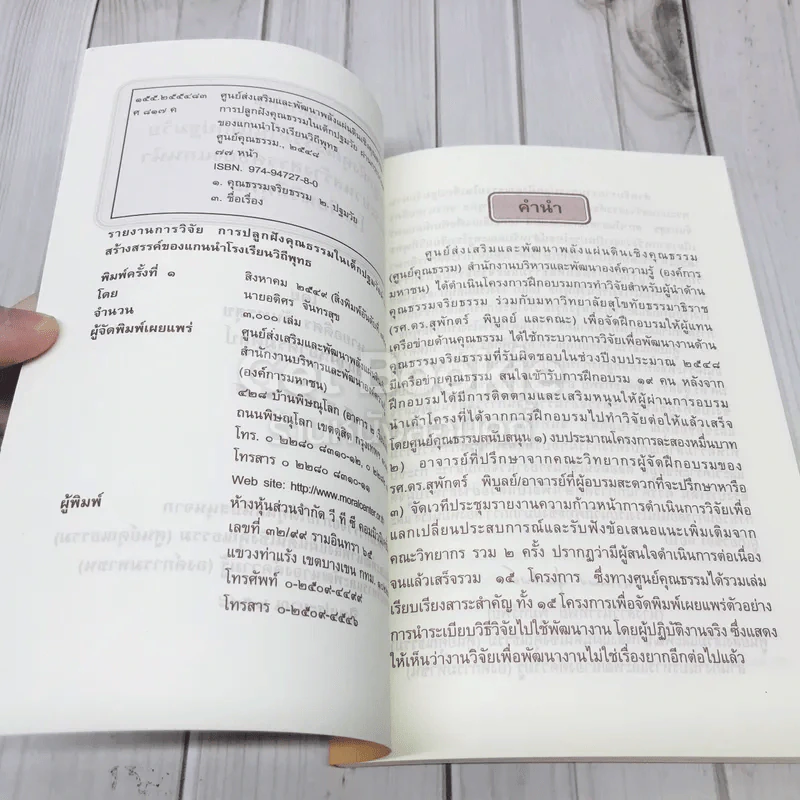 ๑๕๕.๒๕๕๔๘๓ ศูนย์ส่งเสริมและพัฒนาพลังแผ่นดินเชิงคุณธรรม
ศ ๘๑๗ ค การปลูกฝังคุณธรรมในเด็กปฐมวัย
ของแกนนำโรงเรียนวิถีพุทธ
ศูนย์คุณธรรม., ๒๕๔๘
๗๗ หน้า
ISBN. 974-94727-8-0
๑. คุณธรรมจริยธรรม ๒. ปฐมวัย
๓. ชื่อเรื่อง
รายงานการวิจัย การปลูกฝังคุณธรรมในเด็กปฐมวัย
สร้างสรรค์ของแกนนำโรงเรียนวิถีพุทธ
พิมพ์ครั้งที่ ๑ สิงหาคม ๒๕๔๙ (สิ่งพิมพ์อันดับที่
โดย นายอดิศร จันทรสุข
จำนวน ๓,๐๐๐ เล่ม
ผู้จัดพิมพ์เผยแพร่ ศูนย์ส่งเสริมและพัฒนาพลังแผ่นดิน
สำนักงานบริหารและพัฒนาองค์ความรู้
(องค์การมหาชน)
๔๒๘ บ้านพิษณุโลก (อาคาร ๒
ถนนพิษณุโลก เขตดุสิต กรุงเทพฯ
โทร. ๐ ๒๒๘๐ ๘๓๑๐-๑๒,
โทรสาร ๐ ๒๒๘๐ ๘๓๑๐-๑๑
Web site: http://www.moralcenter.or.th
ผู้พิมพ์ ห้างหุ้นส่วนจำกัด วี ที ซี คอมมิวนิเคชั่น
เลขที่ ๓๒/๙๙ รามอินทรา ๖๕
แขวงท่าแร้ง เขตบางเขน กทม.
โทรศัพท์ ๐-๒๕๐๙-๔๔๙๙
โทรสาร ๐-๒๕๐๙-๔๕๔๖
คำนำ
ศูนย์ส่งเสริมและพัฒนาพลังแผ่นดินเชิงคุณธรรม
(ศูนย์คุณธรรม) สำนักงานบริหารและพัฒนาองค์ความรู้ (องค์การ
มหาชน) ได้ดำเนินโครงการฝึกอบรมการทำวิจัยสำหรับผู้นำด้าน
คุณธรรมจริยธรรม ร่วมกับมหาวิทยาลัยสุโขทัยธรรมาธิราช
(รศ.ดร.สุพักตร์ พิบูลย์ และคณะ) เพื่อจัดฝึกอบรมให้ผู้แทน
เครือข่ายด้านคุณธรรม ได้ใช้กระบวนการวิจัยเพื่อพัฒนางานด้าน
คุณธรรมจริยธรรมที่รับผิดชอบในช่วงปีงบประมาณ ๒๕๔๘
มีเครือข่ายคุณธรรม สนใจเข้ารับการฝึกอบรม ๑๙ คน หลังจาก
ฝึกอบรมได้มีการติดตามและเสริมหนุนให้ผู้ผ่านการอบรม
นำเค้าโครงที่ได้จากการฝึกอบรมไปทำวิจัยต่อให้แล้วเสร็จ
โดยศูนย์คุณธรรมสนับสนุน ๑) งบประมาณโครงการละสองหมื่นบาท
๒) อาจารย์ที่ปรึกษาจากคณะวิทยากรผู้จัดฝึกอบรมของ
รศ.ดร.สุพักตร์ พิบูลย์/อาจารย์ที่ผู้อบรมสะดวกที่จะปรึกษาหารือ
๓) จัดเวทีประชุมรายงานความก้าวหน้าการดำเนินการวิจัยเพื่อ
แลกเปลี่ยนประสบการณ์และรับฟังข้อเสนอแนะเพิ่มเติมจาก
คณะวิทยากร รวม ๒ ครั้ง ปรากฏว่ามีผู้สนใจดำเนินการต่อเนื่อง
จนแล้วเสร็จรวม ๑๕ โครงการ ซึ่งทางศูนย์คุณธรรมได้รวมเล่ม
เรียบเรียงสาระสำคัญ ทั้ง ๑๕ โครงการเพื่อจัดพิมพ์เผยแพร่ตัวอย่าง
การนำระเบียบวิธีวิจัยไปใช้พัฒนางาน โดยผู้ปฏิบัติงานจริง ซึ่งแสดง
ให้เห็นว่างานวิจัยเพื่อพัฒนางานไม่ใช่เรื่องยากอีกต่อไปแล้ว